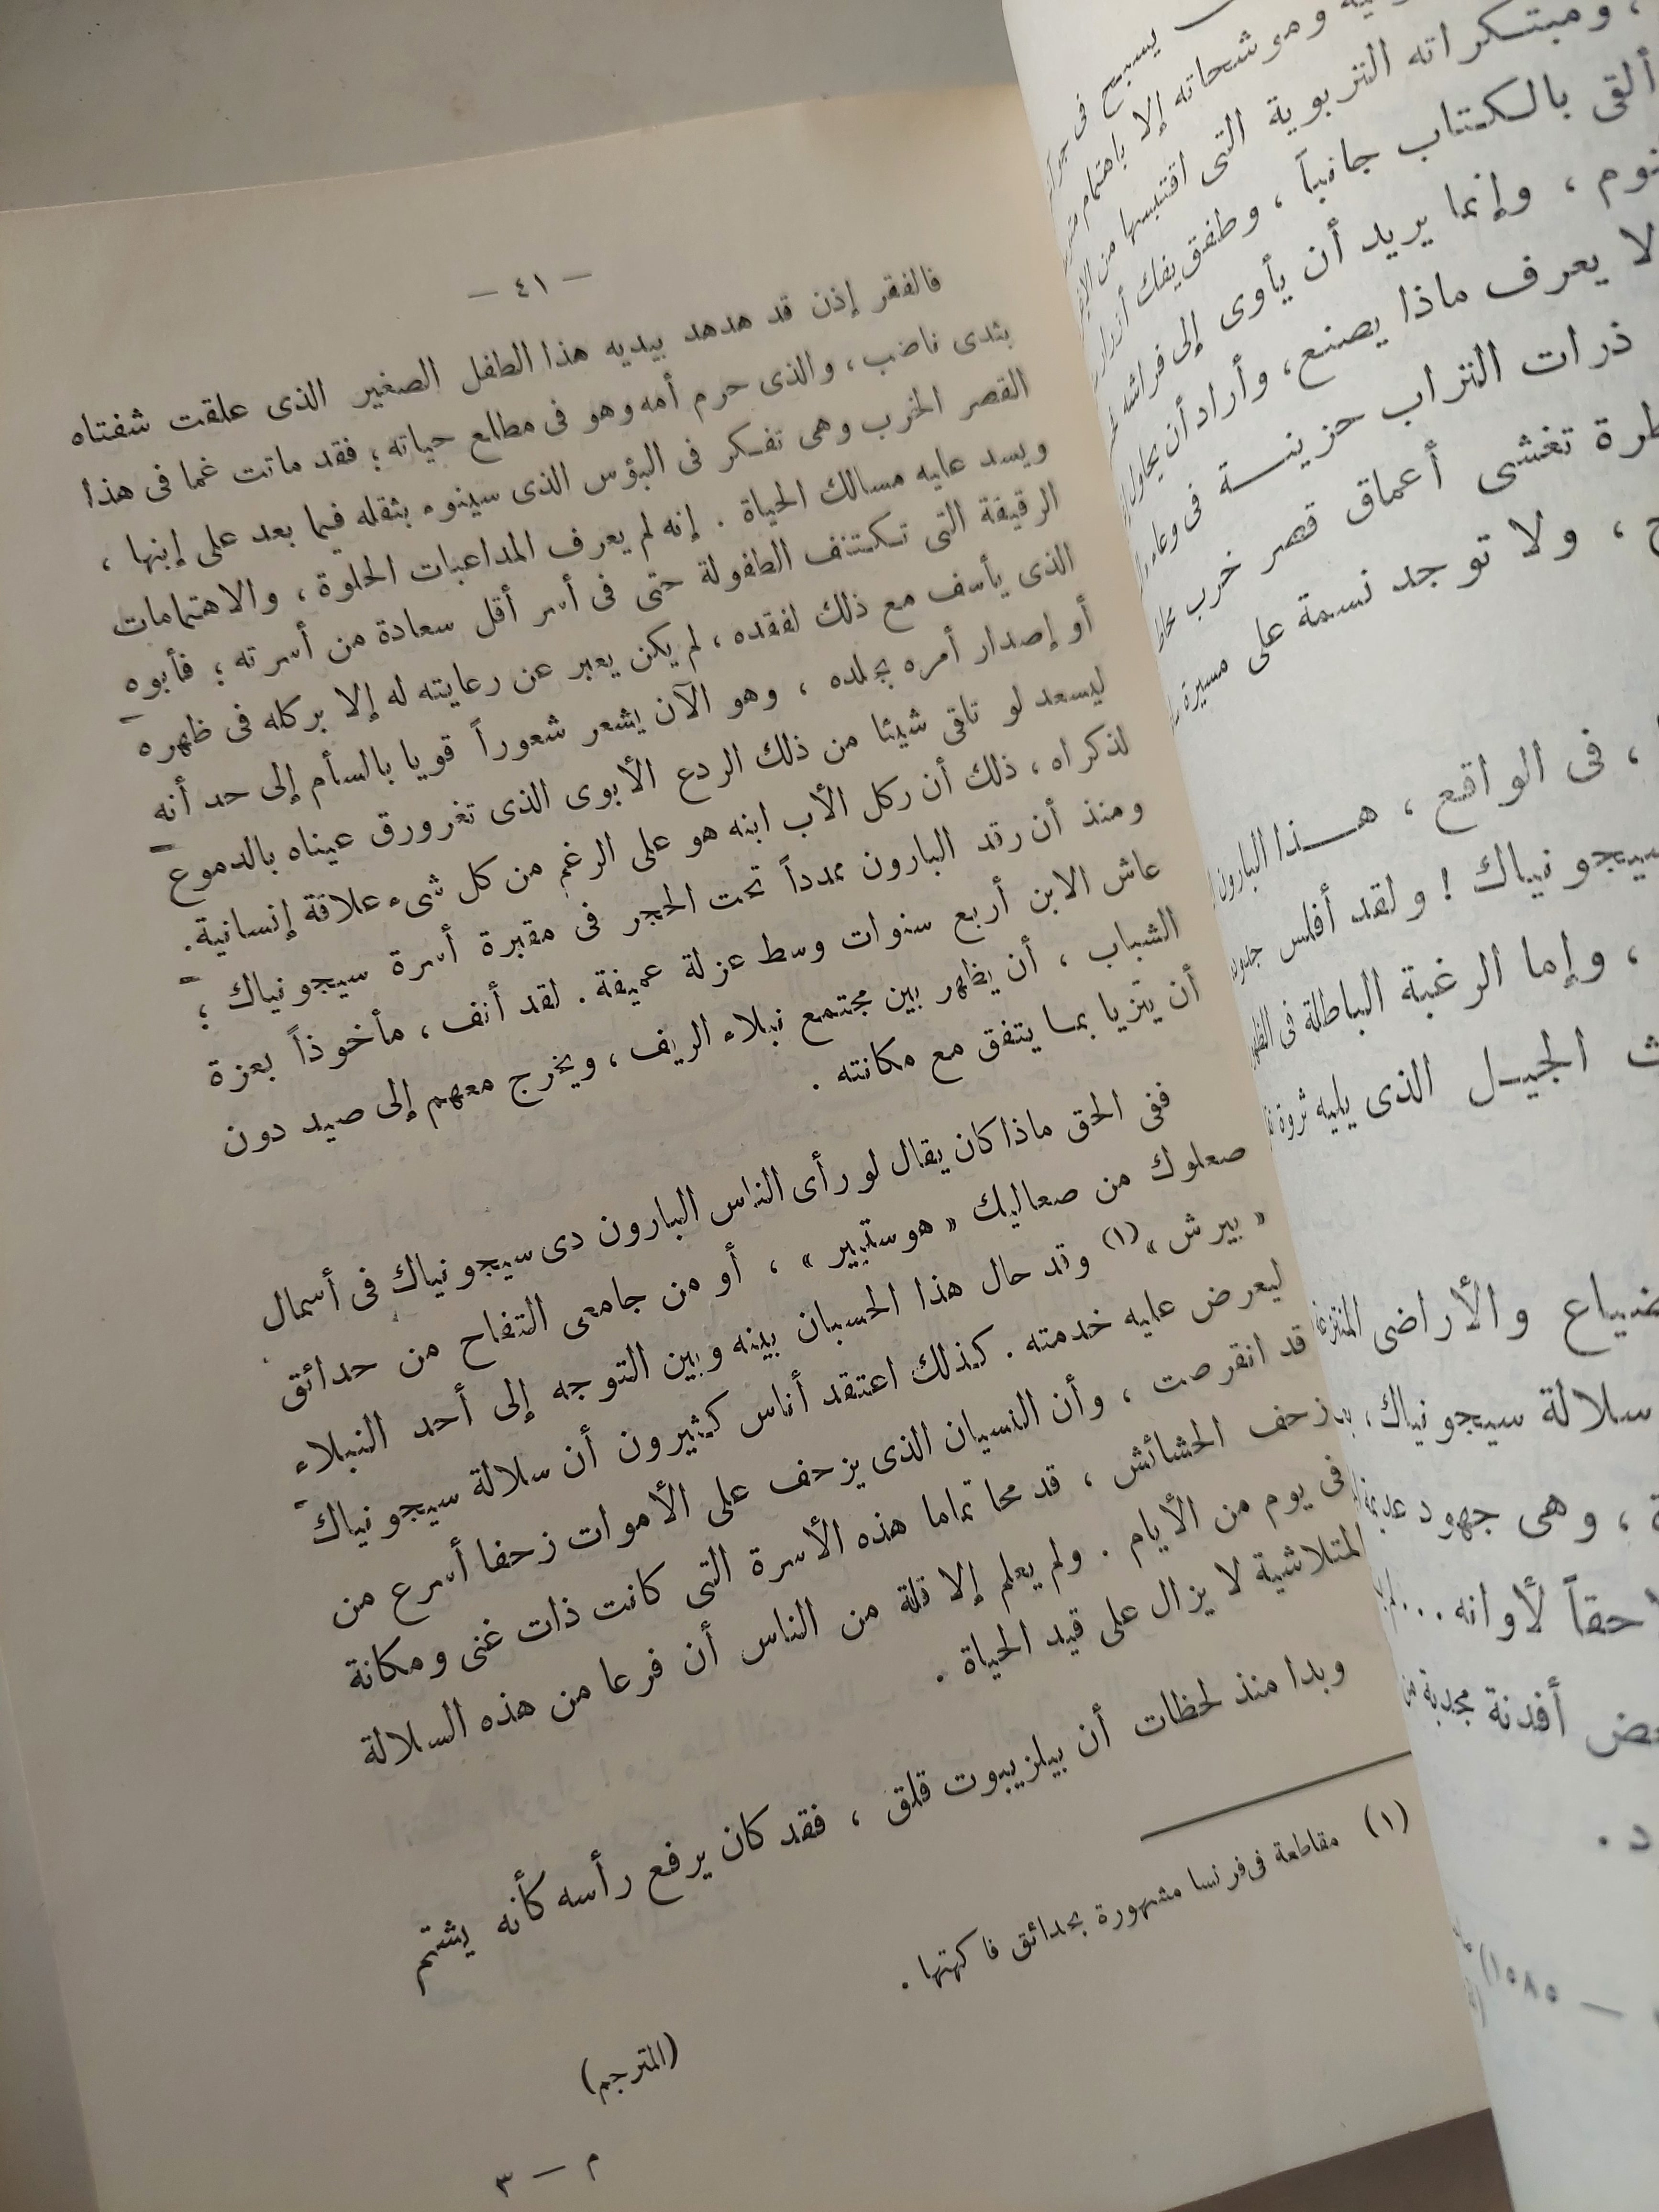 — ٤١ —
فالفقر إذن قد هدهد بيديه هذا الطفل الصغير الذى علقت شفتاه
بثدى ناضب ، والذى حرم أمه وهو فى مطلع حياته ؛ فقد ماتت غما فى هذا
القصر الخرب وهى تفكر فى البؤس الذى سينوء بثقله فيما بعد على إبنها ،
ويسد عليه مسالك الحياة . إنه لم يعرف المداعبات الحلوة ، والاهتمامات
الرقيقة التى تكتنف الطفولة حتى فى أسر أقل سعادة من أسرته ؛ فأبوه
الذى يأسف مع ذلك لفقده ، لم يكن يعبر عن رعايته له إلا بركله فى ظهره
أو إصدار أمره بجلده ، وهو الآن يشعر شعوراً قويا بالسأم إلى حد أنه
ليسعد لو تلقى شيئا من ذلك الردع الأبوى الذى تغرورق عيناه بالدموع
لذكراه ، ذلك أن ركل الأب ابنه هو على الرغم من كل شىء علاقة إنسانية .
ومنذ أن رقد البارون ممدداً تحت الحجر فى مقبرة أسرة سيجونياك ؛
عاش الابن أربع سنوات وسط عزلة عميقة . لقد أنف ، مأخوذاً بعزة
الشباب ، أن يظهر بين مجتمع نبلاء الريف ، ويخرج معهم إلى صيد دون
أن يتزيا بما يتفق مع مكانته .
ففى الحق ماذا كان يقال لو رأى الناس البارون دى سيجونياك فى أسمال
صعلوك من صعاليك « هوستبير » ، أو من جامعى التفاح من حدائق
« بيرش » (١) وقد حال هذا الحسبان بينه وبين التوجه إلى أحد النبلاء
ليعرض عليه خدمته . كذلك اعتقد أناس كثيرون أن سلالة سيجونياك
قد انقرصت ، وأن النسيان الذى يزحف على الأموات زحفا أسرع من
زحف الحشائش ، قد محا تماما هذه الأسرة التى كانت ذات غنى ومكانة
فى يوم من الأيام . ولم يعلم إلا قلة من الناس أن فرعا من هذه السلالة
المتلاشية لا يزال على قيد الحياة .
وبدا منذ لحظات أن بيلزيبوت قلق ، فقد كان يرفع رأسه كأنه يشتم
(١) مقاطعة فى فرنسا مشهورة بحدائق فاكهتها .
(المترجم)
م — ٣
يسبح فى
وموشحاته إلا باهتمام
، ومبتكراته التربوية التى اقتبسها من
ألقى بالكتاب جانباً ، وطفق يفك أزرار
، وإنما يريد أن يأوى إلى فراشه
لا يعرف ماذا يصنع ، وأراد أن يحاول
ذرات التراب حزينة فى
تغشى أعماق قصر خرب
، ولا توجد نسمة على مسيرة
، فى الواقع ، هذا البارون
سيجونياك ! ولقد أفلس
، وإما الرغبة الباطلة فى
الجيل الذى يليه ثروة
والأراضى
سلالة سيجونياك ،
، وهى جهود
لأوانه ...
أفدنة مجدبة
— ١٥٨٥)